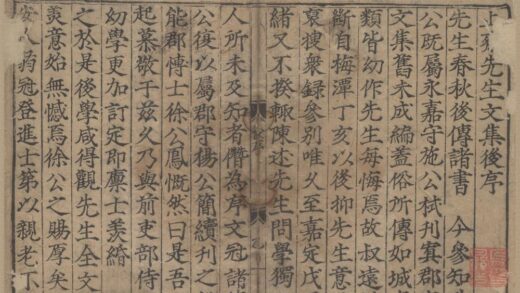 止齋先生文集後序
先生春秋後傳諸書　今參知
公既屬永嘉守施公栻刋寘郡
文集舊未成編蓋俗所傳如城
類皆幼作先生每悔焉故叔遠
斷自梅潭丁亥以後抑先生意
裒搜衆録參别唯久至嘉定戊
緒又不揆輒陳述先生問學獨
人所未及知者僣為序文冠諸
公復以屬郡守楊公簡續刋之
能郡博士徐公鳳慨然曰是吾
起慕敬于兹久乃與前吏部侍
幼學更加訂定即廪士羡緡
之於是後學咸得觀先生全文
羡意始無憾焉徐公之賜厚矣
安人弱冠登進士第以親老下